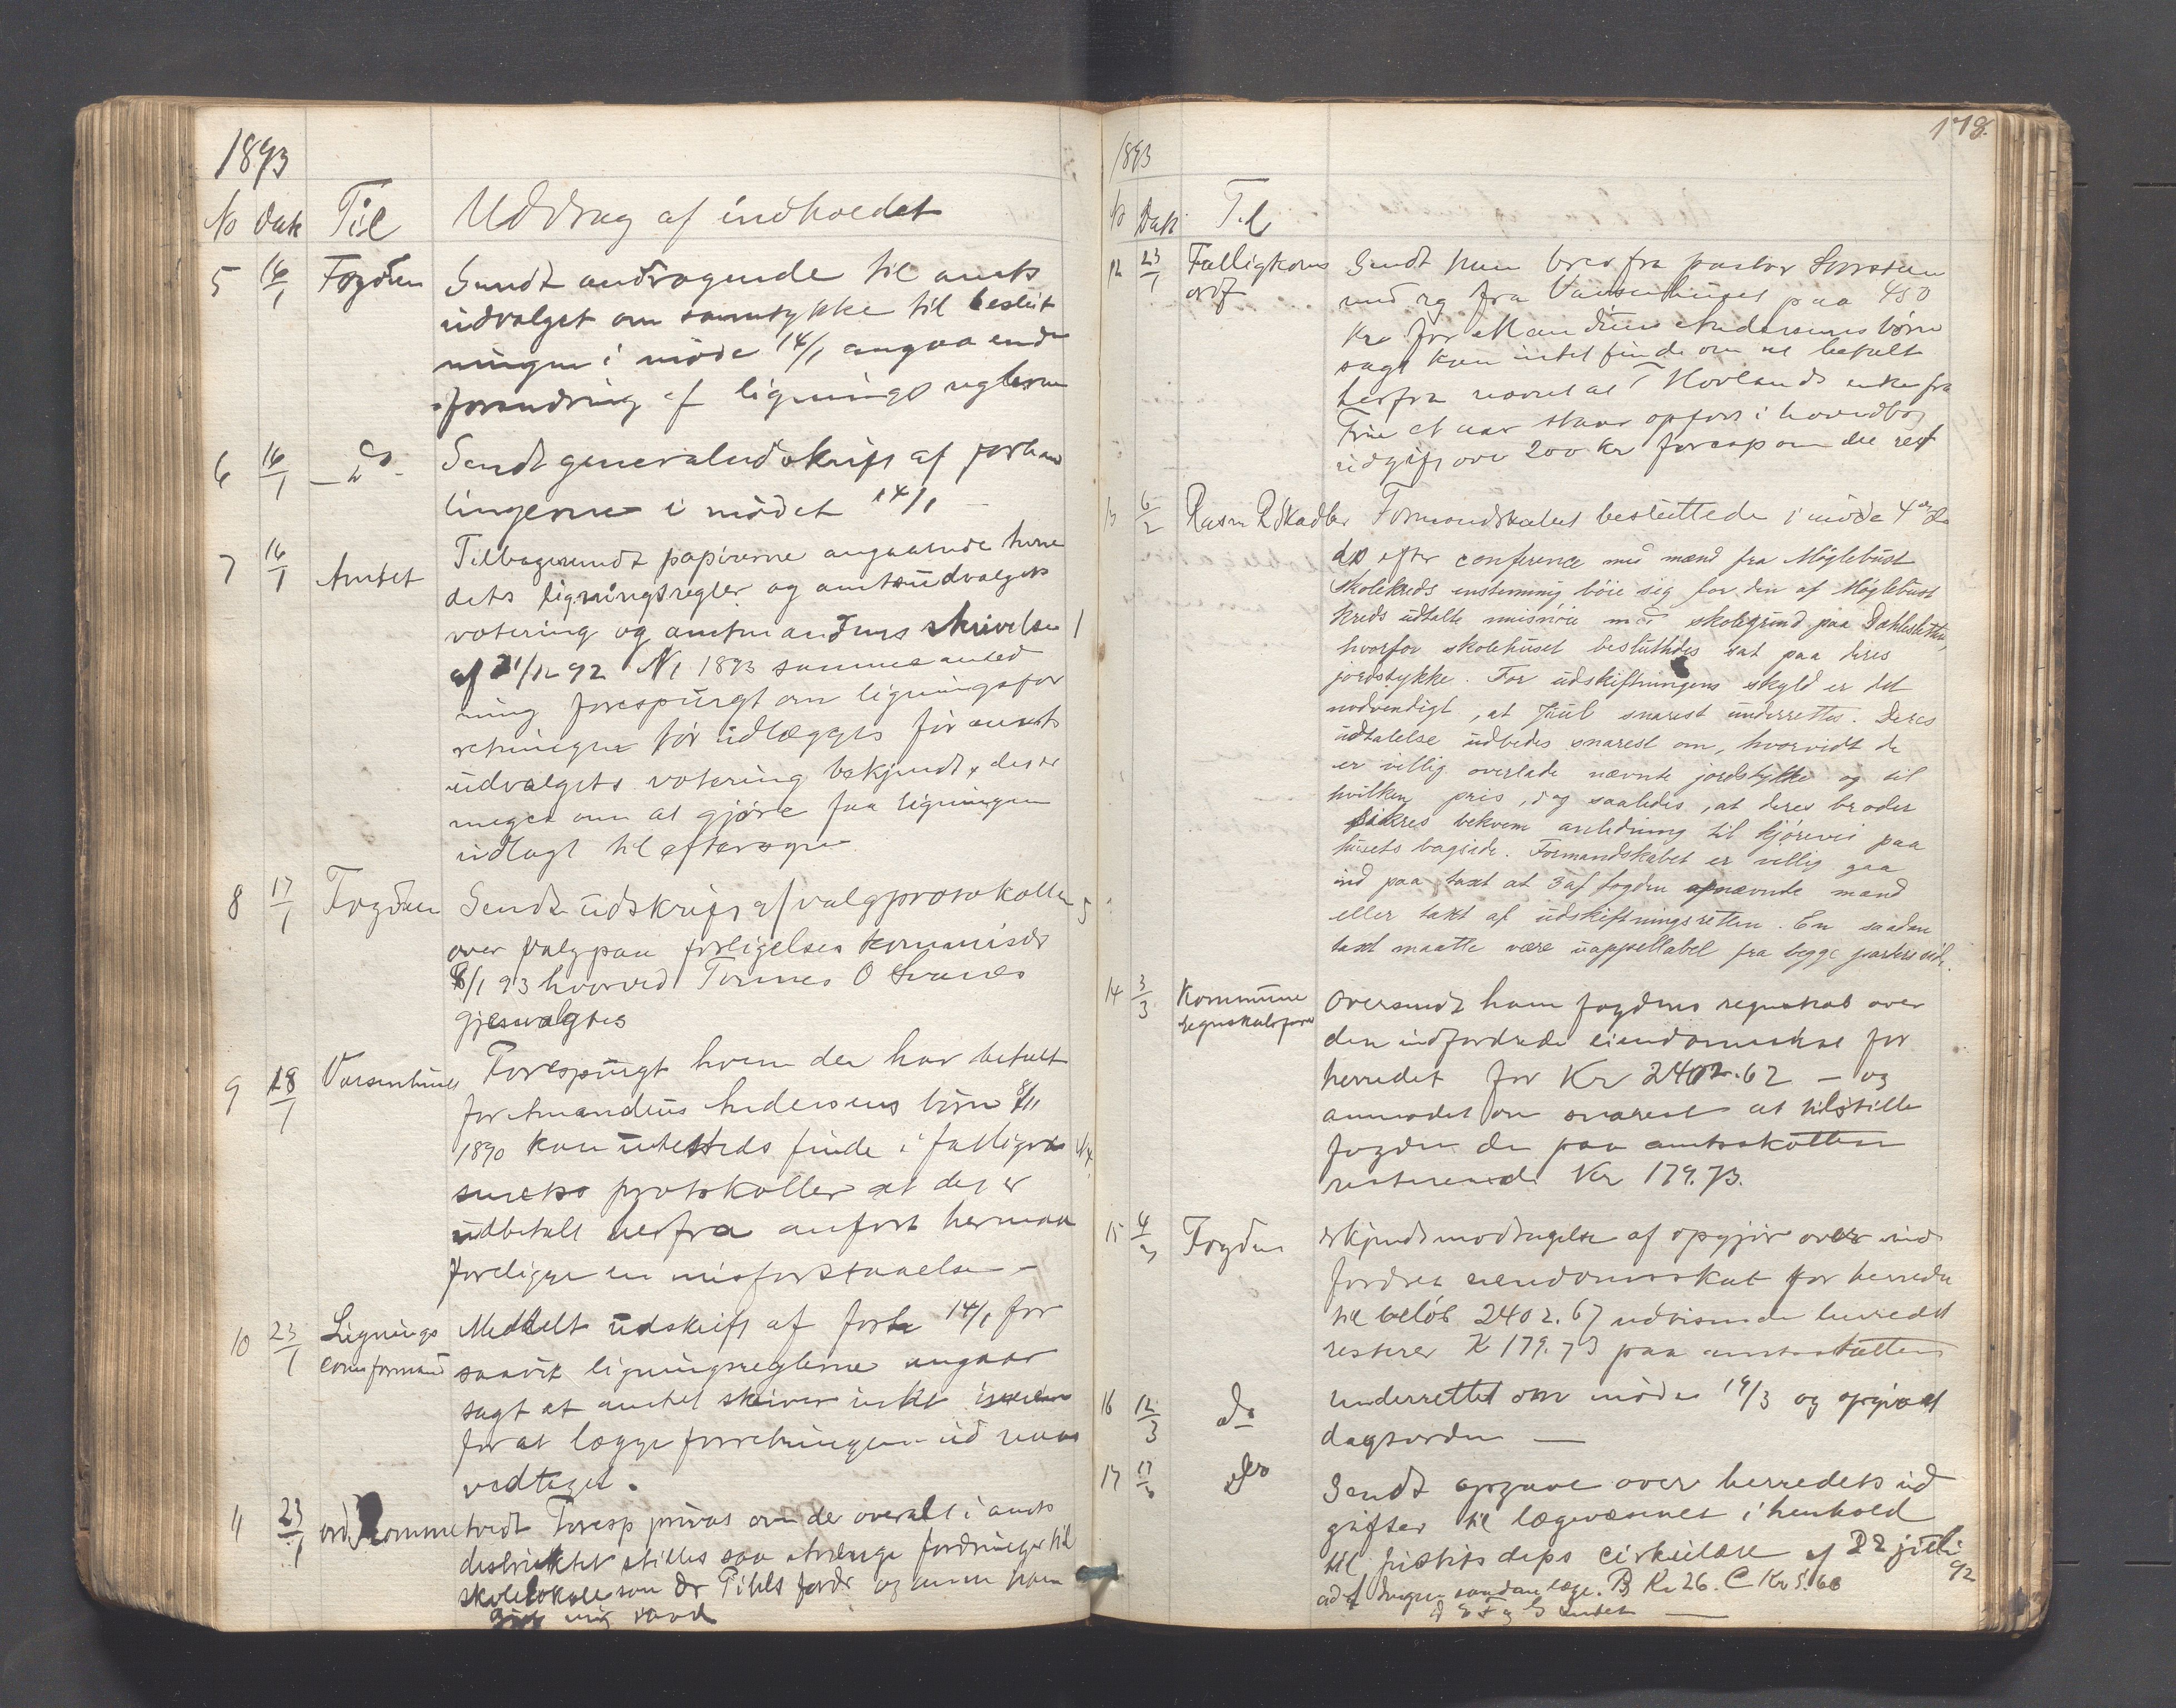 1893
No Dato Til Uddrag af indholdet
5 16/1 Fogden Sendt andragende til amts
udvalget om samtykke til beslut
ningen i møde 14/1 angaaende
forandring af ligningsreglerne
6 16/1 - Do - Sendt generaludskrift af forhand
lingerne i mødet 14/1
7 16/1 Amtet Tilbagesendt papirerne angaaende herre
dets ligningsregler og amtsudvalgets
votering og amtmandens skrivelse
af 31/12 92 N1 1893 samme anled
ning forespurgt om ligningsfor
retningen bør udlægges før amts
udvalgets votering bekjendt, der er
meget om at gjøre faa ligningen
udlagt til eftersyn
8 17/1 Fogden Sendt udskrift af valgprotokollen
over valg paa forligelses kommisær
8/1 93 hvorved Tønnes O Svanes
gjenvalgtes
9 18/1 Vaisenhuset Forespurgt hvem der har betalt
for Amandius Andersens børn 8/11
1890 kan intetsteds finde i fattigvæ
snets protokoller at der er
udbetalt herfra anført her maa
foreligge en misforstaaelse -
10 23/1 Lignings
comformand Meddelt udskrift af forh 14/1 for
saavit ligningsreglerne angaar
sagt at amtet skriver intet
for at lægge forretningen ud
vedtaget.
11 23/1 ordf Tommetvedt Foresp privat om der overalt i amts
distriktet stilles saa strænge fordringer til
skolelokale som Dr Pihls fordr og
mig raad
178.
1893
No Dato Til
12 23/1 Fattigkoms
ordf Sendt ham brev fra pastor
med rg fra Vaisenhuset paa 450
kr for Amandius Andersens børn
sagt kan intet finde om at betalt
herfra uden at T Hovlands enke fra
et aar staar opført i hovedbog
udgift over 200 kr foresp om det rest
13 6/2 Rasm R Skadber Formandskabet besluttede i møde 4de ds
ds efter conference med mænd fra Møglebust
Skolekreds enstemmig bøie sig for den af Møglebust
kreds udtalte misnøie med skolegrund paa Dahlesletten,
hvorfor skolehuset besluttedes sat paa deres
jordstykke. For udskiftningens skyld er det
nødvendigt, at Juul snarest underrettes. Deres
udtalelse udbedes snarest om, hvorvidt de
er villig overlade nævnte jordstykke og til
hvilken pris, dog saaledes, at deres broder
sikres bekvem anledning til kjørevei paa
husets bagside. Formandskabet er villig gaa
ind paa taxt at 3 af fogden opnævnte mænd
eller takt af udskiftningsretten. En saadan
taxt maatte være uappellabel fra begge parters side.
14 3/3 Kommune
regnskabsfører Oversendt ham fogdens regnskab over
den indfordrede eiendomsskat for
herredet for Kr 2402.62 - og
anmodet om snarest at tilstille
fogden de paa amtsskatten
resterende Kr 179.73.
15 4/3 Fogden Erkjendt modtagelse af opgjør over ind
fordret eiendomsskat for herredet
til beløb 2402.67 udvisende herredet
resterer K 179.73 paa amtsskatten
16 12/3 Do Underrettet om møde 19/3 og opgivet
dagsorden -
17 17/3 Do Sendt opgave over herredets ud
gifter til lægevæsenet i henhold
til justits deps cirkulære af 22 juli
92
ad A Ingen saadan læge. B Kr 26. C Kr 5.60
d E F og G Intet -